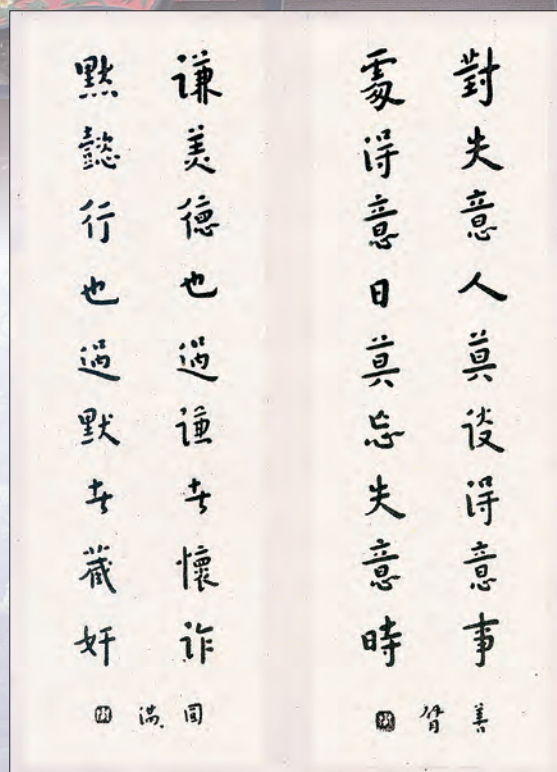 對失意人莫談得意事
處得意日莫忘失意時
善
謙美德也過謙者懷詐
默懿行也過默者藏奸
圓滿